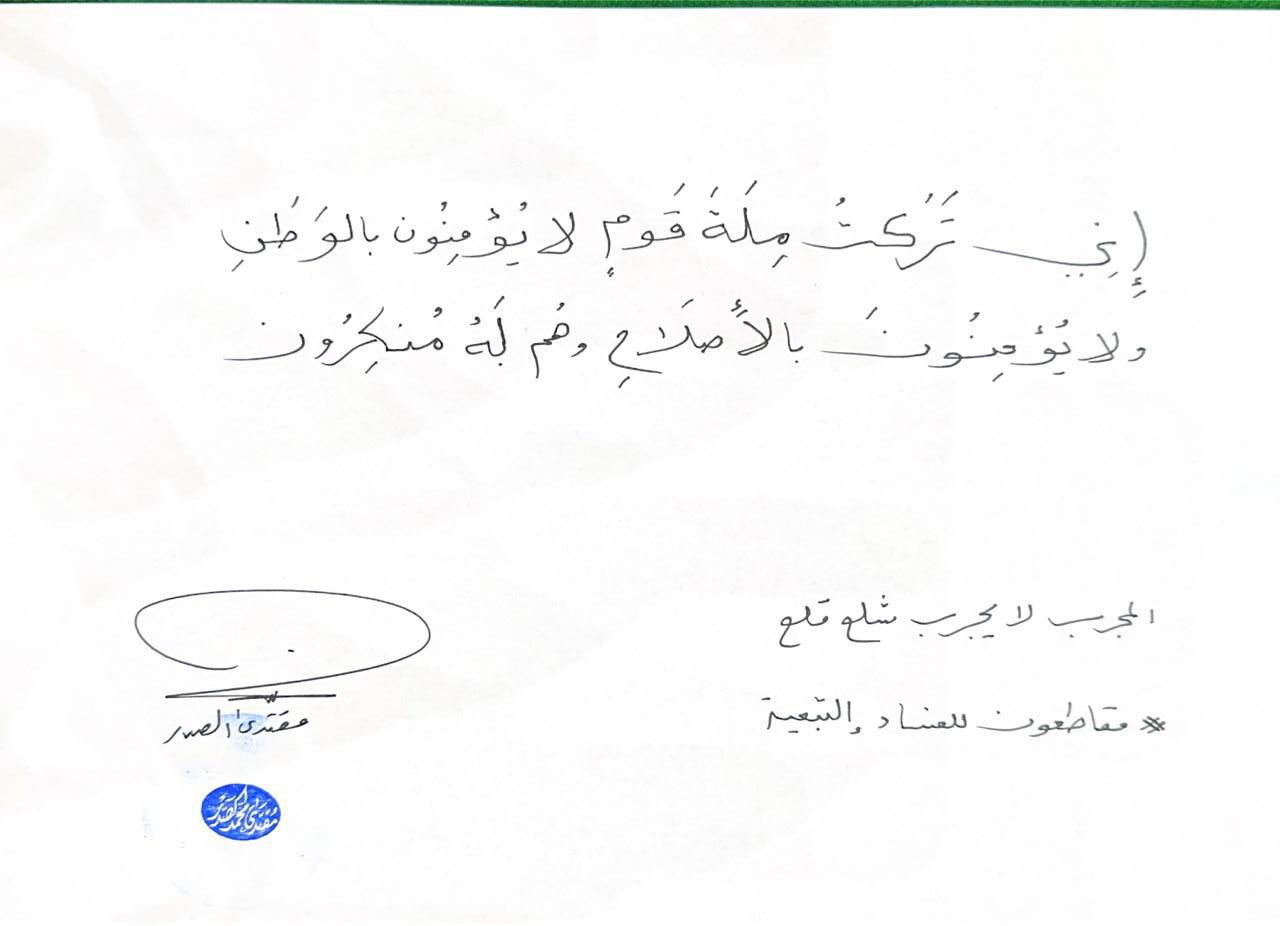 إِنِّي تَرَكتُ مِلَةَ قَومٍ لا يُؤمِنُون بالوَطَنِ
ولا يُؤمِنُونَ بالأَصلَاحِ وهُم لَهُ مُنكِرُون
المجرب لا يجرب شلع قلع
# مقاطعون للفساد والتبعية
مقتدى الصدر